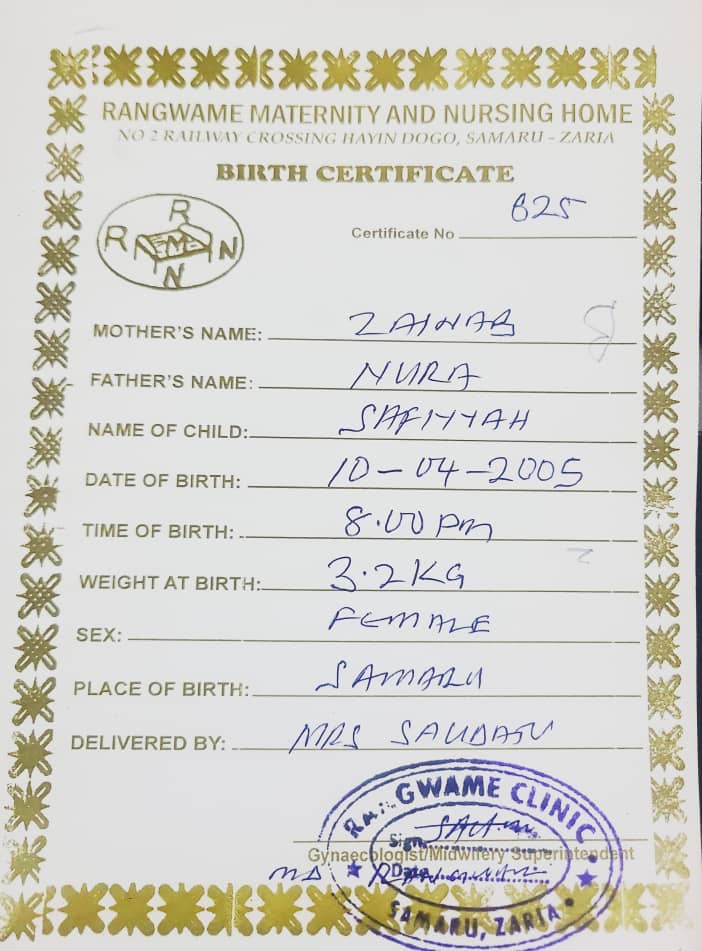 RANGWAME MATERNITY AND NURSING HOME
NO 2 RAILWAY CROSSING HAYIN DOGO, SAMARU - ZARIA
BIRTH CERTIFICATE
R
R M N
N
Certificate No 625
MOTHER'S NAME: ZAINAB
FATHER'S NAME: NURA
NAME OF CHILD: SAFIYYAH
DATE OF BIRTH: 10-04-2005
TIME OF BIRTH: 8.00 Pm
WEIGHT AT BIRTH: 3.2KG
SEX: FEMALE
PLACE OF BIRTH: SAMARU
DELIVERED BY: MRS SAUDATU
GWAME CLINIC
Sign
Gynaecologist/Midwifery Superintendent
MD
Date
SAMARU, ZARIA